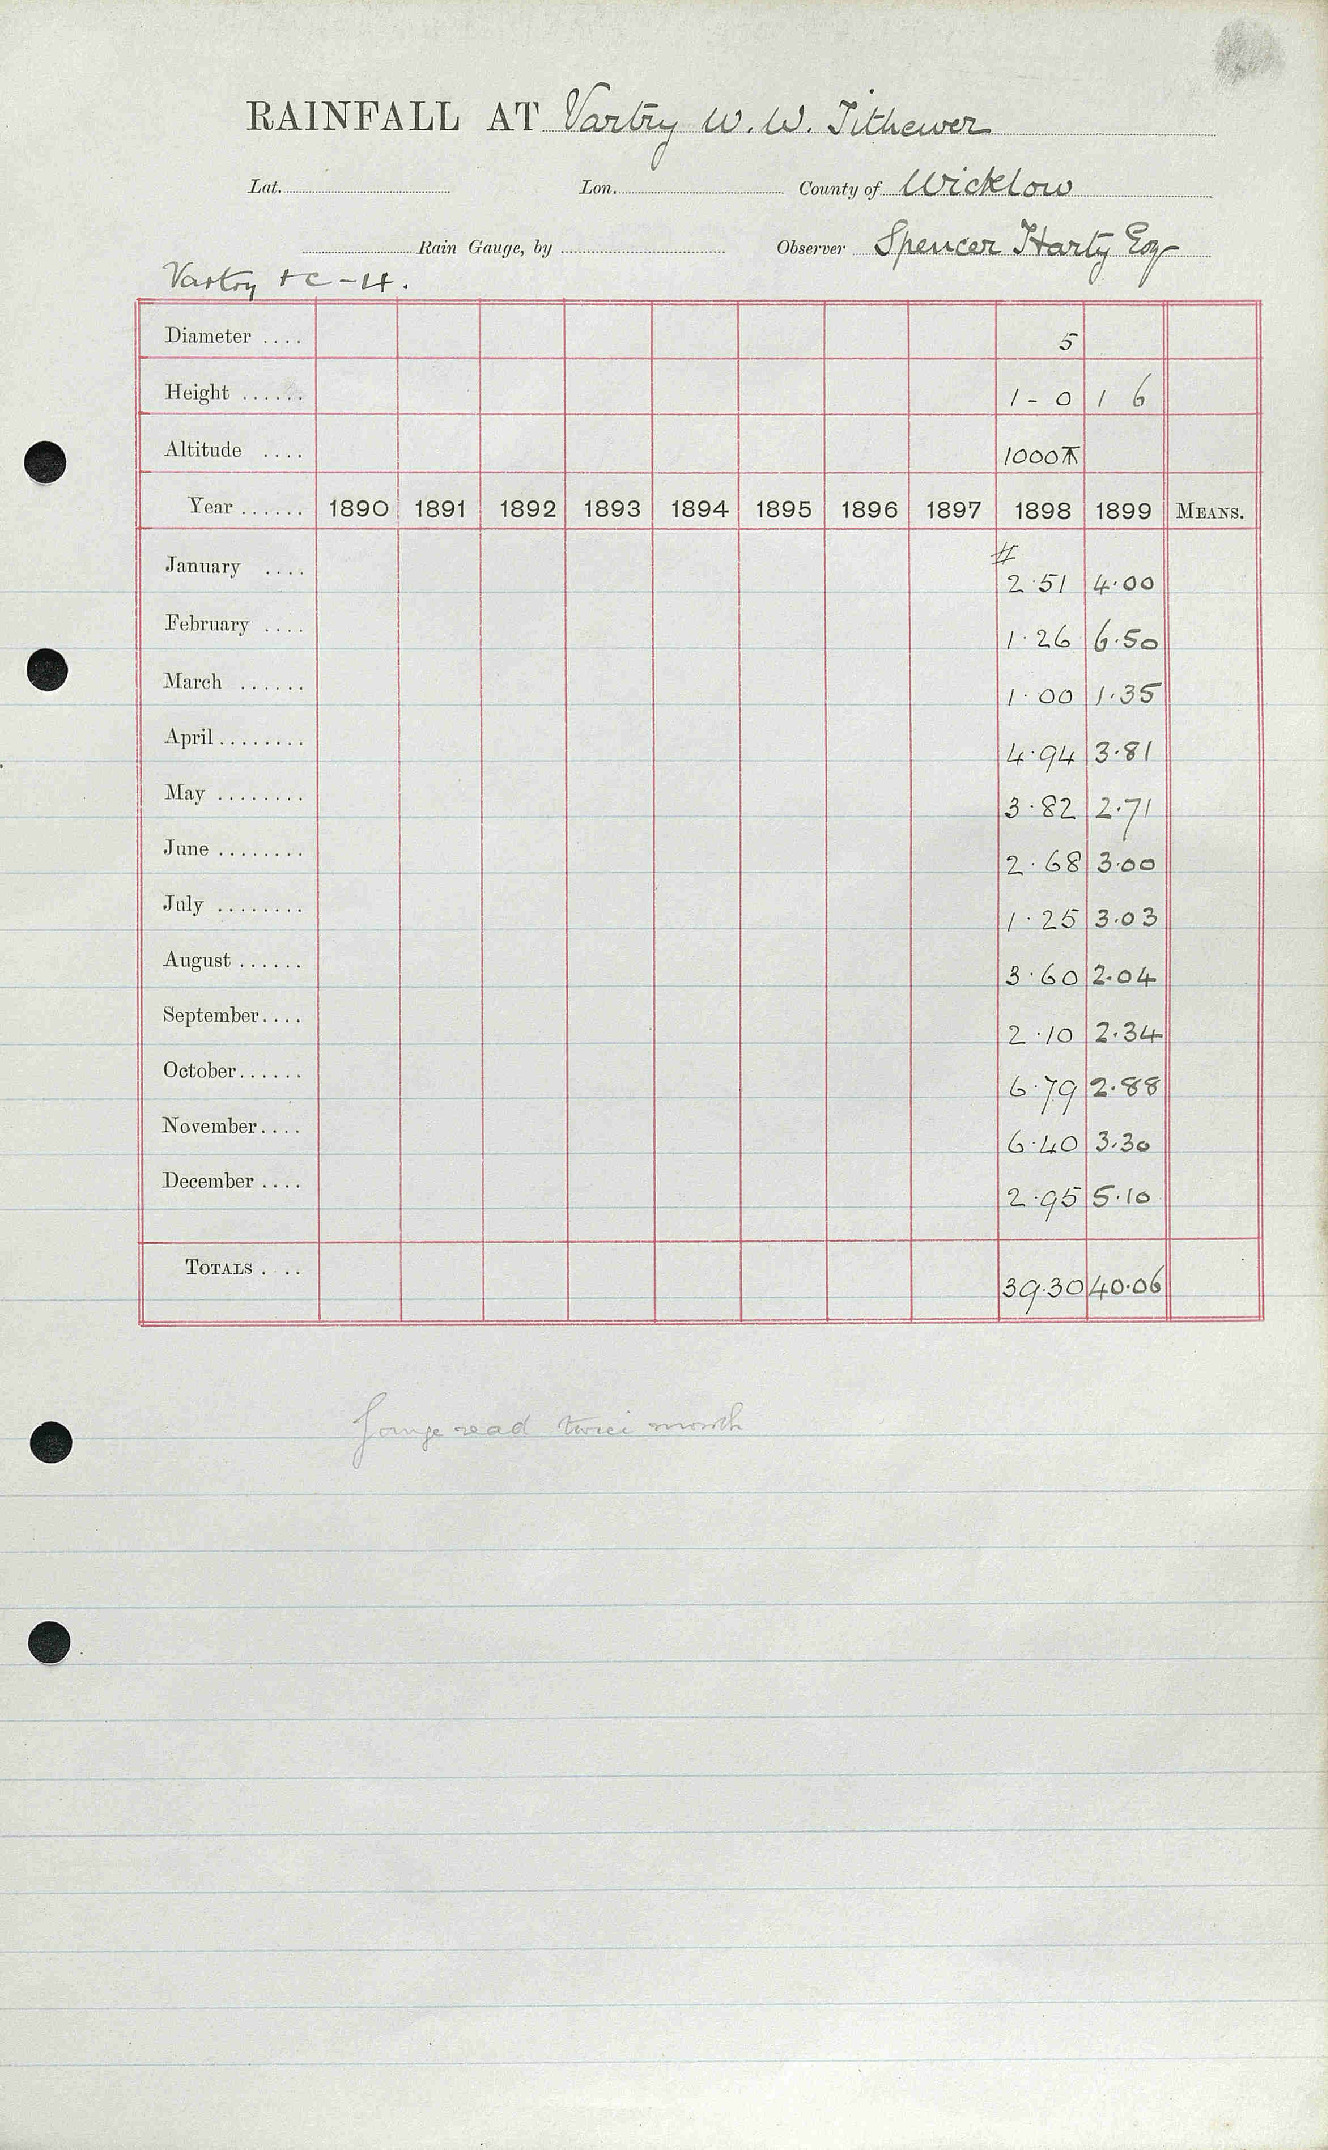 RAINFALL AT Vartry W.W. Tithewer
Lat. Lon. County of Wicklow
Rain Gauge, by Observer Spencer Harty Esq
Vartry + C - 4.
Diameter .... 5
Height ...... 1 - 0 1 6
Altitude .... 1000
Year ...... 1890 1891 1892 1893 1894 1895 1896 1897 1898 1899 MEANS.
#
January .... 2.51 4.00
February .... 1.26 6.50
March ...... 1.00 1.35
April ........ 4.94 3.81
May ........ 3.82 2.71
June ........ 2.68 3.00
July ........ 1.25 3.03
August ...... 3.60 2.04
September .... 2.10 2.34
October ...... 6.79 2.88
November .... 6.40 3.30
December .... 2.95 5.10
TOTALS .... 39.30 40.06
Gauge read twice month